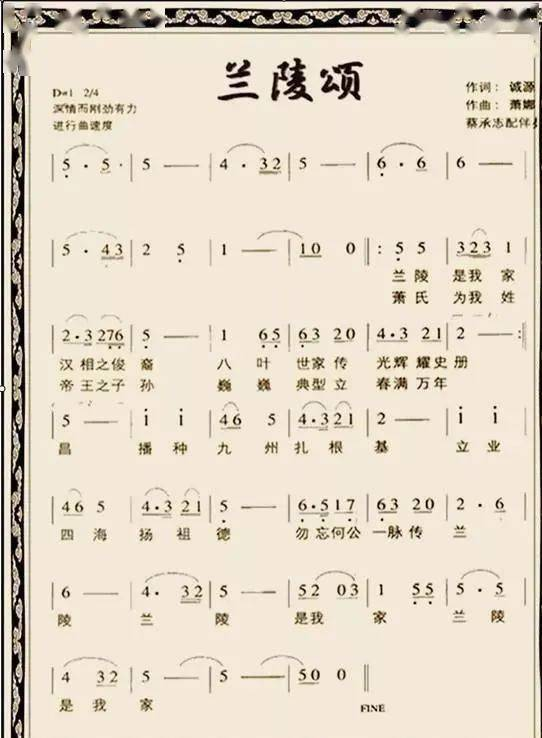 兰陵颂
D=1 2/4
深情而刚劲有力
进行曲速度
作词：诚源
作曲：萧娜
蔡承志配伴奏
5 · 5 | 5 — | 4 · 32 | 5 — | 6 · 6 | 5 — |
5 · 43 | 2 5 | 1 — | 10 0 |: 5 5 | 323 1 |
兰陵 是我 家
萧氏 为我 姓
2·3 276 | 5 — | 1 65 | 63 20 | 4·3 21 | 2 — :|
汉相之俊裔 八叶 世家传 光辉耀史册
帝王之子孙 巍巍 典型立 春满万年
5 — | i i | 46 5 | 4·3 21 | 2 — | i i |
昌 播种 九州 扎根 基 立业
46 5 | 4·3 21 | 5 — | 6·5 17 | 63 20 | 2 · 6 |
四海 扬祖 德 勿忘何公 一脉传 兰
6 — | 4 · 32 | 5 — | 52 03 | 1 55 | 5 · 5 |
陵 兰 陵 是我 家 兰陵
4 32 | 5 — | 5 — | 50 0 ‖
是我 家
FINE